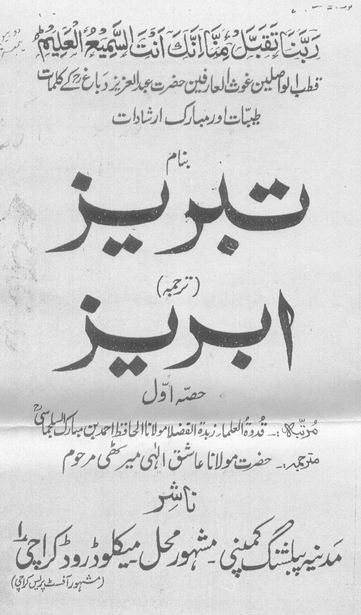 رَبَّنَا تَقَبَّلْ مِنَّا اِنَّكَ اَنْتَ السَّمِيْعُ الْعَلِيْمُ
قطب الواصلین غوث العارفین حضرت عبدالعزیز دباغ رح کے کلمات
طیبات اور مبارک ارشادات
بنام
تبریز
(ترجمہ)
ابریز
حصہ اول
مرتبہ:۔ قدوۃ العلماء زبدۃ الفضلا مولانا الحافظ احمد بن مبارک السلجماسی رح
مترجمہ:۔ حضرت مولانا عاشق الٰہی میرٹھی مرحوم
ناشر
مدنیہ پبلشنگ کمپنی۔ مشہور محل۔ میکلوڈ روڈ کراچی ۱
(مشہور آفسٹ پریس کراچی)